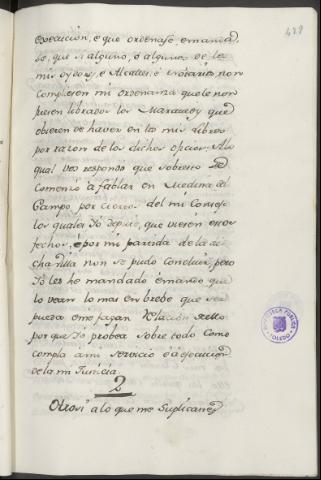 428
execucion, é que ordenase, é mandase,
se, que si alguno, é algunos de los
mis oydores, é Alcaldes, é Notarios non
compliesen mi ordenanza que le non
fuesen librados los Maravedis que
obieren de haver en los mis libros
por razon de los dichos oficios. A lo
qual vos respondo que sobresto se
comenzó á fablar en Medina del
Campo, por ciertos del mi Consejo
los quales Yo depute, que viesen esos
fechos, é por mi partida de la di-
cha Villa non se pudo concluir, pero
Yo les he mandado é mando que
lo vean lo mas en brebe que ser
pueda é me fagan relacion dello
por que Yo probea sobre todo como
compla á mi servicio é á ejecucion
de la mi Justicia.
2
Otrosi á lo que me suplicaredes
BIBLIOTECA PUBLICA
TOLEDO